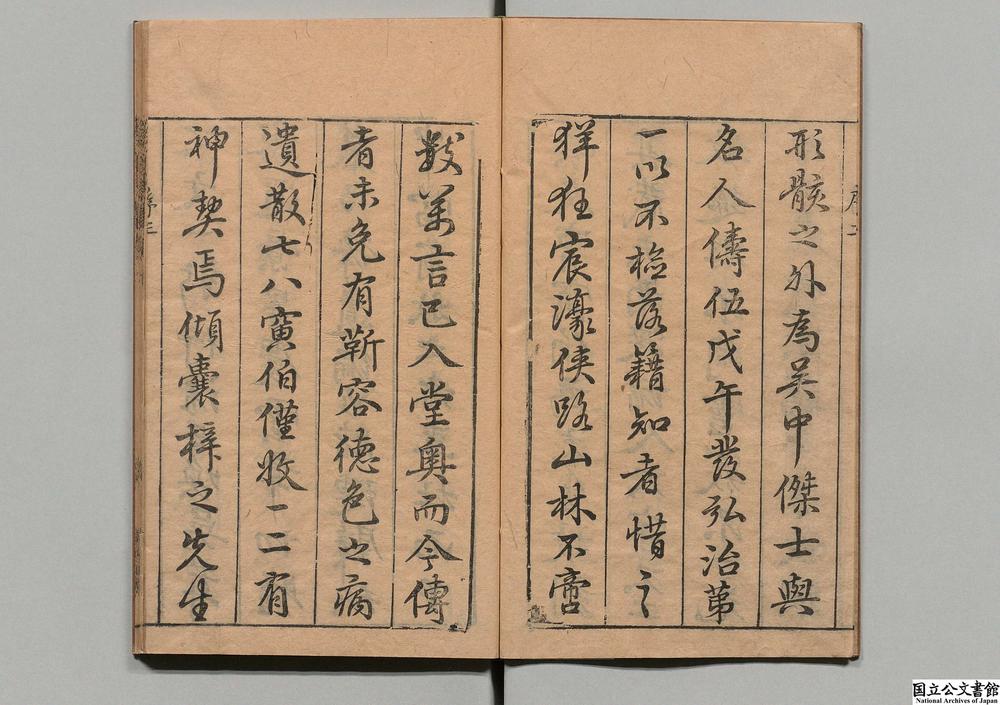 形骸之外為吳中傑士與
名人儔伍戊午發弘治第
一以不檢落籍知者惜之
猖狂宸濠俠路山林不啻
數萬言已入堂奧而今傳
者未免有靳容德色之病
遺散七八寅伯僅收一二有
神契焉傾囊梓之先生
序三
国立公文書館
National Archives of Japan